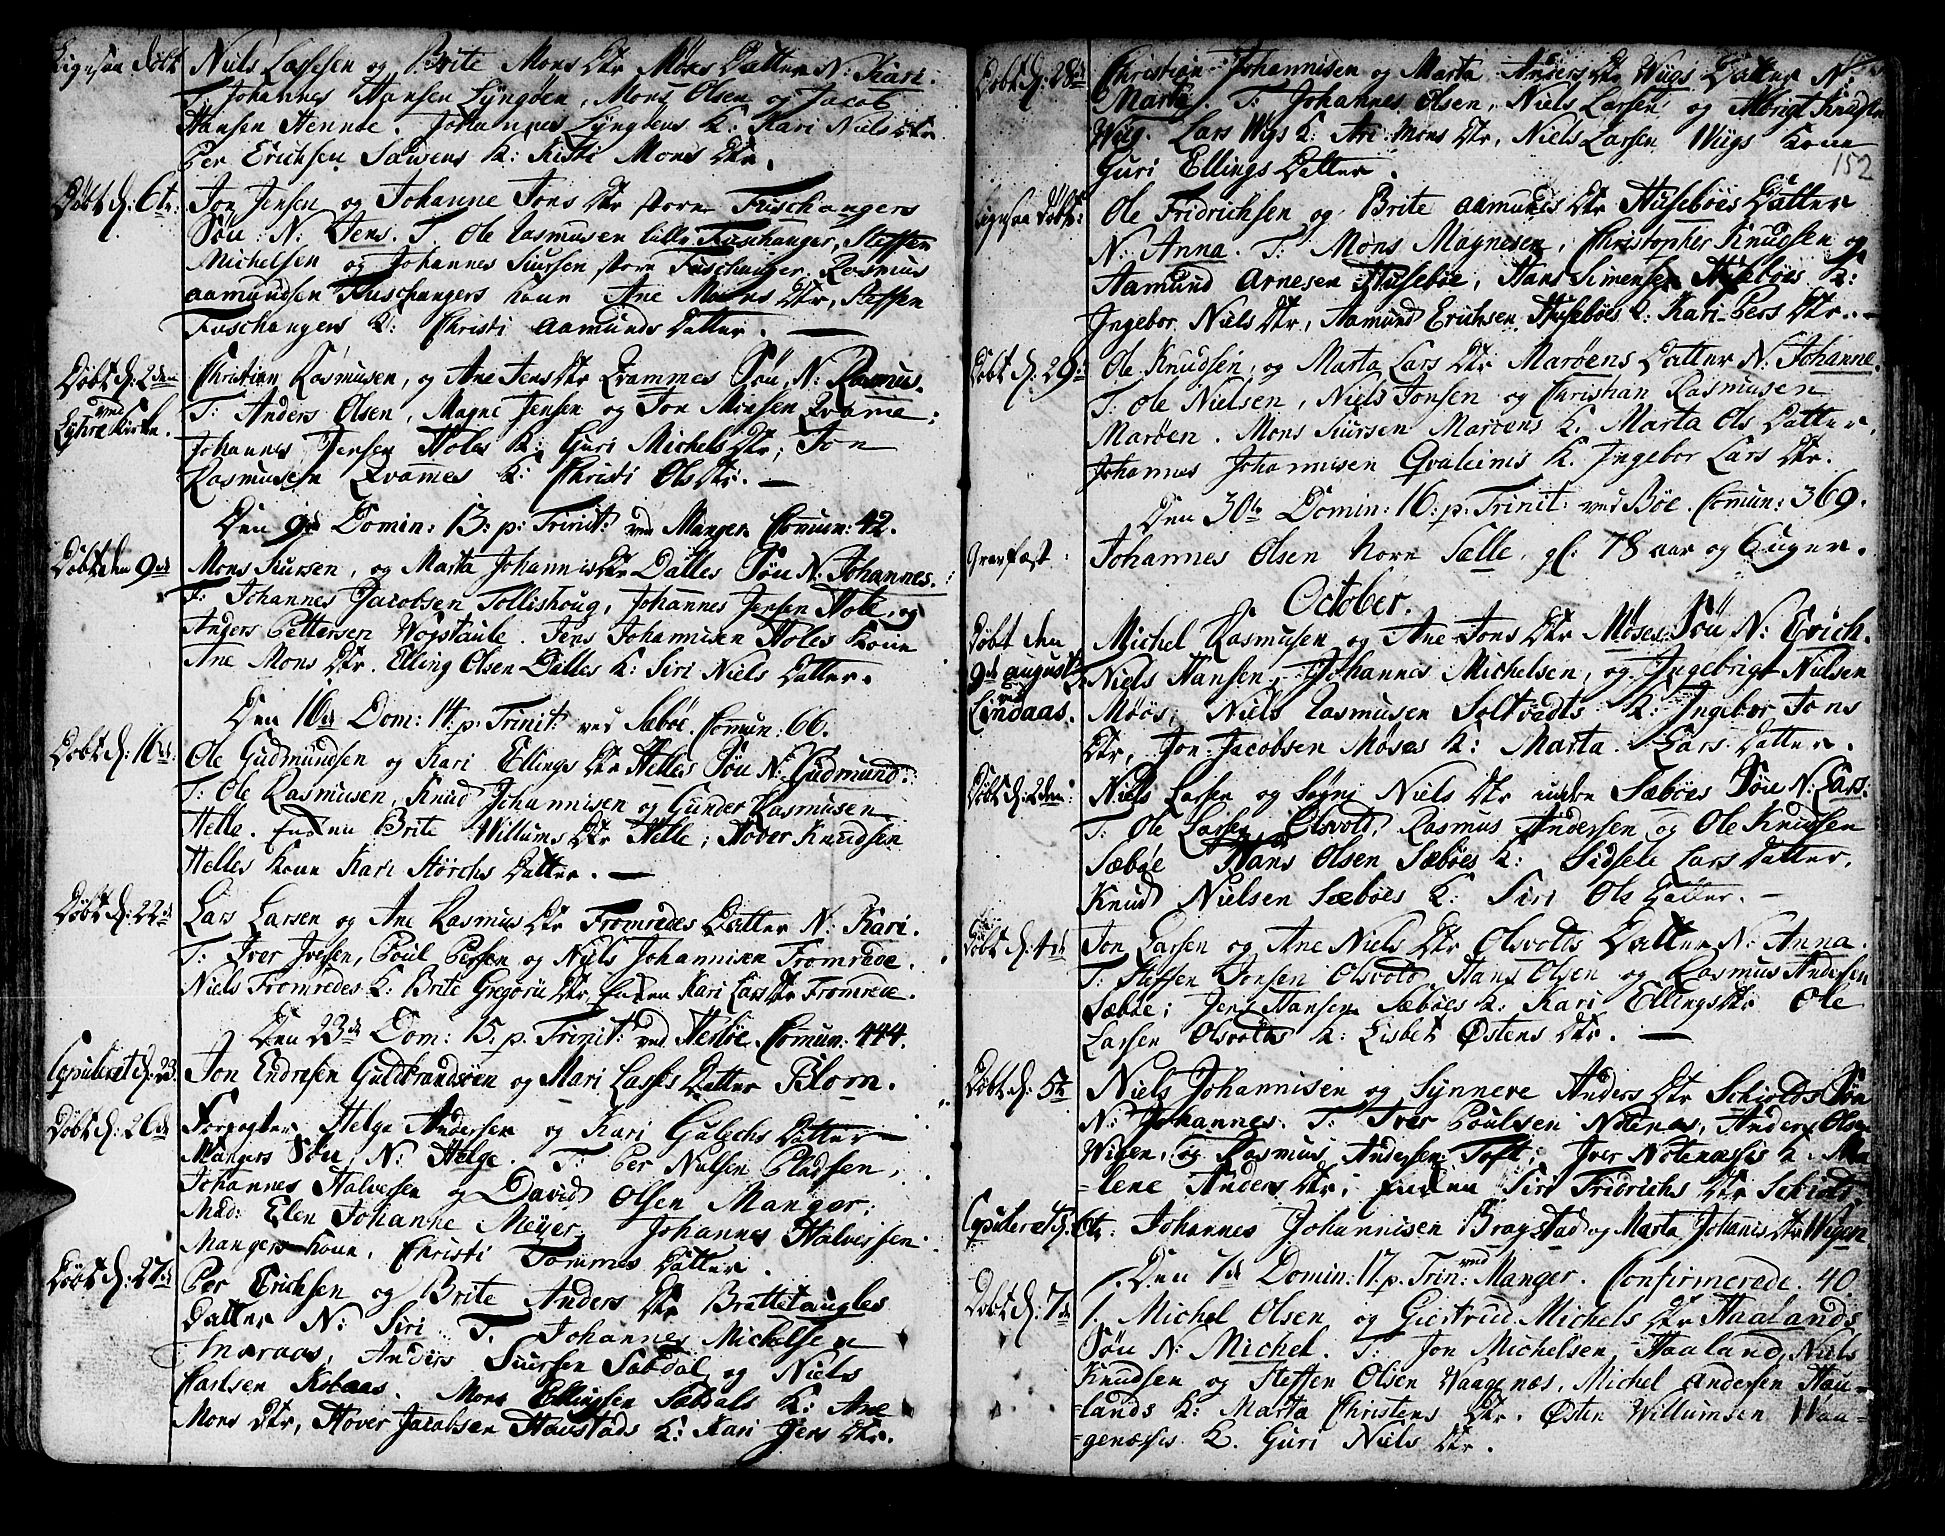 Ligesaa Döbt Niels Lassesen og Brite Mons Dtr Möes Datter N: Kari.
T. Johannes Hansen Lyngöen, Mons Olsen og Jacob
Hansen Hennöe. Johannes Lyngöens K: Kari Niels Dtr
Per Erichsen K: Kisti Mons Dtr.
Döbt d: 6te Jon Jensen og Johanne Jons Dtr store Fuschangers
Sön N: Jens. T. Ole Rasmusen lille Fuschanger, Steffen
Michelsen og Johannes Siursen store Fuschanger. Rasmus
Aamundsen Fuschangers Kone Ane Mons Dtr, Steffen
Fuschangers K: Christi Aamunds Datter.
Döbt d: 2den ved Lyhre Kirke. Christian Rasmusen, og Ane Jens Dtr Qvammes Sön N: Rasmus.
T: Anders Olsen, Magne Jensen og Jon Monsen Qvame;
Johannes Jensen Holes K: Guri Michels Dtr; Jon
Rasmusen Qvames K: Christi Ols Dtr.
Den 9de Domin: 13: p: Trinit: ved Manger. Comun: 42.
Döbt den 9de Mons Siursen, og Marta Johannis Dtr Dalles Sön N: Johannes.
T: Johannes Jacobsen Tollishoug, Johannes Jensen Hole, og
Anders Pettersen Wogstaule. Jens Johannisen Holes Kone
Ane Mons Dtr. Elling Olsen Dalles K: Siri Niels Datter.
Den 16de Dom: 14. p. Trinit: ved Sæböe. Comun: 66.
Döbt d: 16de Ole Gudmundsen og Kari Ellings Dtr Helles Sön N: Gudmund.
T: Ole Rasmusen, Knud Johannisen og Gunder Rasmusen
Helle. Enken Brite Willums Dtr Helle; Hover Knudsen
Helles Kone Kari Störchs Datter.
Döbt d: 22de Lars Larsen og Ane Rasmus Dtr Fromredes Datter N: Kari.
T: Iver Iversen, Poul Persen og Niels Johannisen Fromrede.
Niels Fromredes K: Brite Gregorii Dtr, Enken Kari Lars Dtr Fromrede.
Den 23de Dom: 15. p. Trinit: ved Herlöe. Comun: 444.
Copuleret d: 23 Jon Endresen Guldbrandsöen og Mari Lasses Datter Blom.
Döbt d: 26de Forpagter Helge Andersen og Kari Gulachs Datter
Mangers Sön N: Helge. T: Per Nielsen Pladsen,
Johannes Halversen og David Olsen Manger;
Mad: Elen Johanne Meyer, Johannes Halversen
Mangers Kone, Christi Tommes Datter.
Döbt d: 27de Per Erichsen og Brite Anders Dtr Brettetaugles
Datter N: Siri. T. Johannes Michelsen
Inæraas, Anders Siursen Sæbdal og Niels
Carlsen Kolaas. Mons Ellingsen Sæbdals K: Ane
Mons Dtr, Hover Jacobsen Haustads K: Kari Jens Dtr.
152
Döbt d: 28de Christian Johannisen og Marta Anders Dtr Wügs Datter N:
Marta. T: Johannes Olsen, Niels Larsen og Abrigt Knudsen
Wüg. Lars Wügs K: Ane Mons Dtr, Niels Larsen Wügs Kone
Guri Ellings Datter.
Ligesaa Döbt: Ole Fridrichsen og Brite Aamunds Dtr Huseböes Datter
N. Anna. T: Mons Magnesen, Christopher Knudsen og
Aamund Arnesen Huseböe, Hans Simensen Huseböes K:
Ingebor Niels Dtr, Aamund Erichsen Huseböes K: Kari Pers Dtr.
Döbt d: 29de Ole Knudsen, og Marta Lars Dtr Maröens Datter N: Johanne.
T: Ole Nielsen, Niels Jonsen og Christian Rasmusen
Maröen. Mons Siursen Maröens K. Marta Ols Datter,
Johannes Johannisen Qvaleims K. Ingebor Lars Dtr.
Den 30te Domin: 16. p. Trinit: ved Böe. Comun: 369.
Gravfæst: Johannes Olsen Nore Sælle, gl: 78 aar og 6 uger.
October.
Döbt den 9de August ved Lindaas. Michel Rasmusen og Ane Jons Dtr Möses Sön N: Erich.
Niels Hansen, Johannes Michelsen, og Ingebrigt Nielsen
Möös, Niels Rasmusen Soltvedts K: Ingebor Jons
Dtr, Jon Jacobsen Möses K: Marta Lars Datter.
Döbt d: 2den: Niels Larsen og Sögni Niels Dtr indre Sæböes Sön N: Lars.
T: Ole Larsen Olsvold, Rasmus Andersen og Ole Knudsen
Sæböe Hans Olsen Sæböes K: Sidsele Lars Datter,
Knud Nielsen Sæböes K: Siri Ols Datter.
Döbt d: 4de Jon Larsen og Ane Niels Dtr Olsvolds Datter N: Anna.
T. Steffen Jonsen Olsvold, Hans Olsen og Rasmus Andersen
Sæböe; Jens Hansen Sæböes K: Kari Ellings Dtr Ole
Larsen Olsvolds K: Lisbet Östens Dtr.
Döbt d: 5te Niels Johannisen og Synneve Anders Dtr Schiolds Sön
N: Johannes. T: Iver Poulsen Notenæs, Anders Olsen
Wigen, og Rasmus Andersen Toft: Iver Notenæssis K. Ma
=lene Anders Dtr; Enken Siri Fridrichs Dtr Schiold.
Copuleret d: 6te. Johannes Johannisen Bragstad og Marta Johannis Dtr Wigen.
Den 7de Domin: 17. p. Trin: ved Manger. Confirmerede. 40.
Döbt d: 7de 1. Michel Olsen og Giertrud Michels Dtr Haalands
Sön N: Michel. T: Jon Michelsen Haaland, Niels
Knudsen og Steffen Olsen Waagenæs, Michel Andersen Haa-
=lands K: Marta Christens Dtr. Östen Willumsen Waa-
=genæssis K. Guri Niels Dtr.